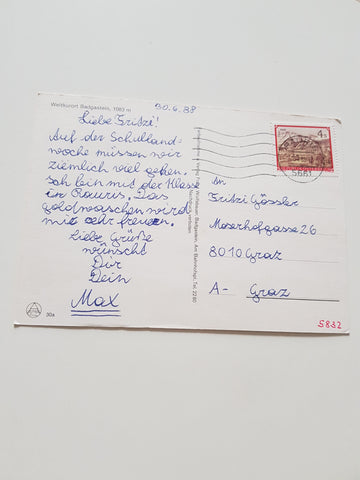 Weltkurort Badgastein, 1083 m
30.6.88
Liebe Fritzi!
Auf der Schulland-
woche müssen wir
ziemlich viel gehen.
Ich bin mit der Klasse
in Rauris. Das
goldwaschen wird
mich sehr freuen.
Liebe Grüße
wünscht
Dir
Dein
Max
30a
4 S
5661
An
Fritzi Gössler
Moserhofgasse 26
8010 Graz
A- Graz
5832